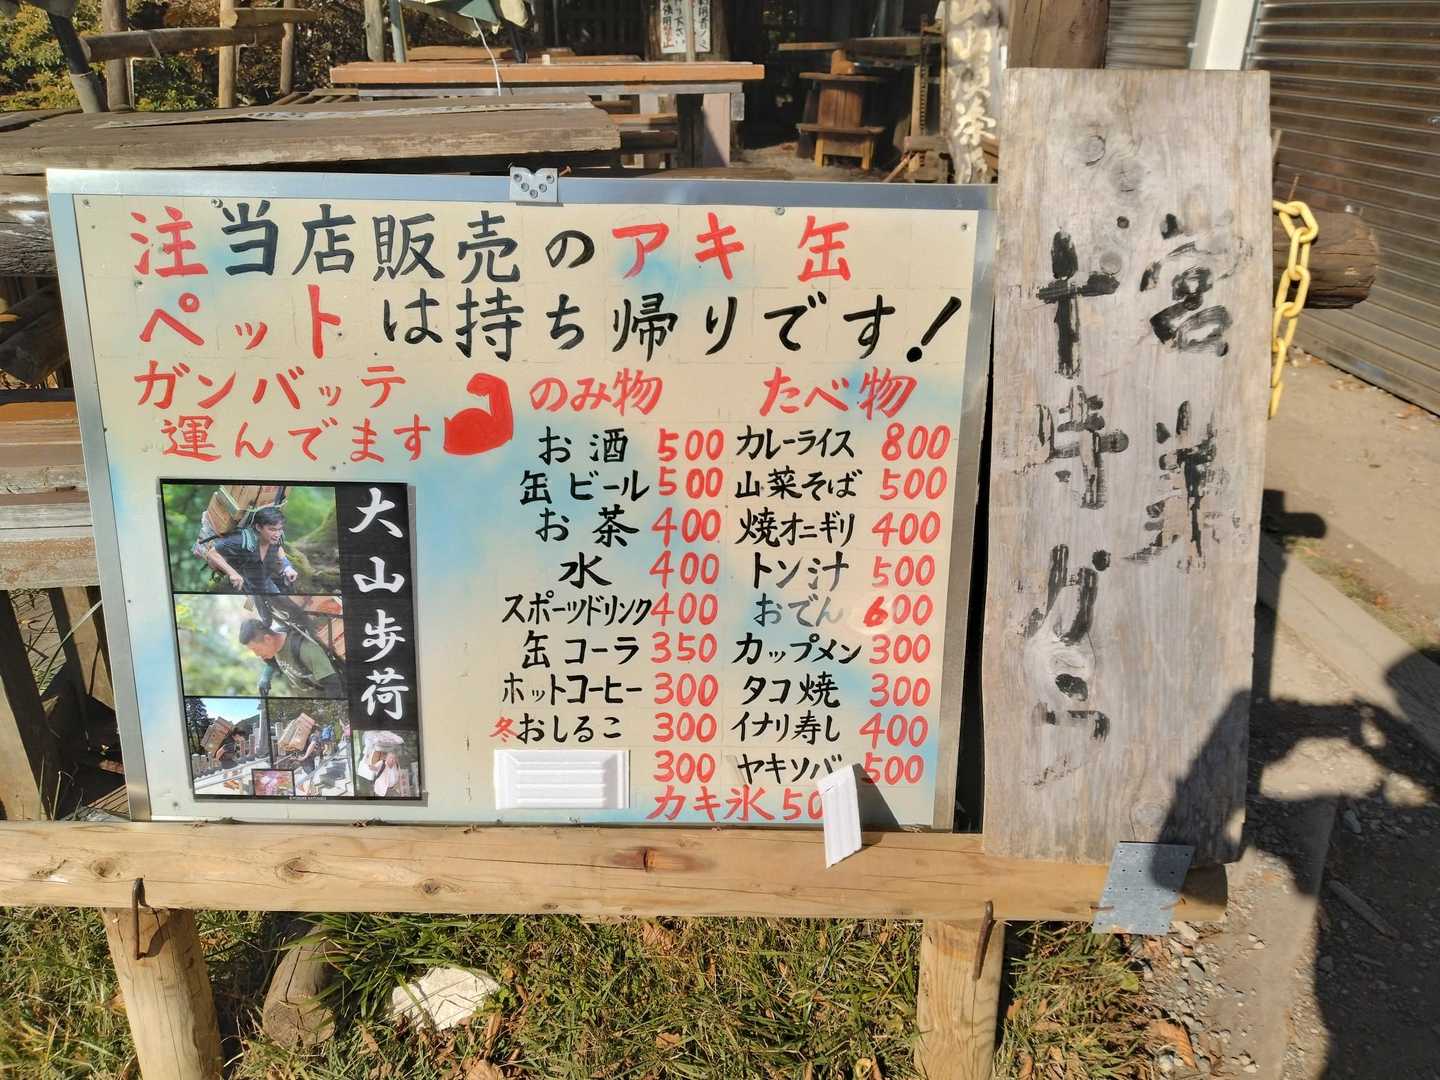 注当店販売のアキ缶
ペットは持ち帰りです!
ガンバッテ
運んでます
のみ物
お酒 500
缶ビール 500
お茶 400
水 400
スポーツドリンク 400
缶コーラ 350
ホットコーヒー 300
冬おしるこ 300
300
カキ氷 50
たべ物
カレーライス 800
山菜そば 500
焼オニギリ 400
トン汁 500
おでん 600
カップメン 300
タコ焼 300
イナリ寿し 400
ヤキソバ 500
大山歩荷
営業
十時から